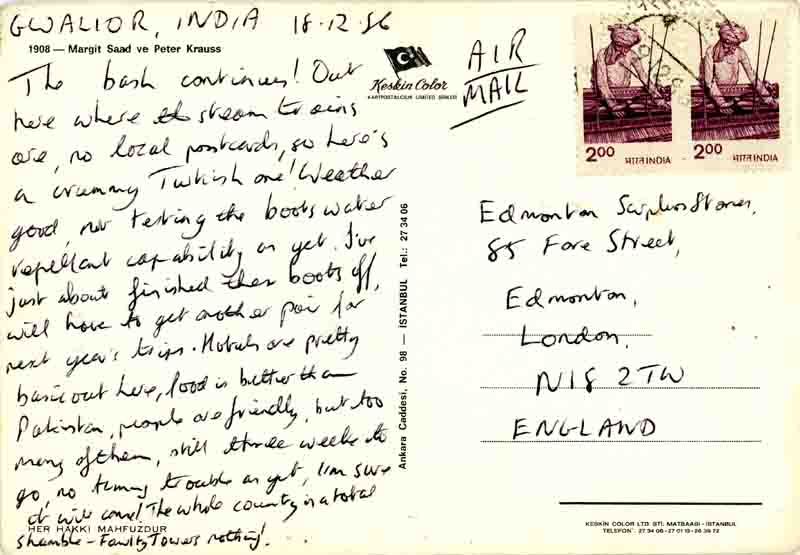 GWALIOR, INDIA 18.12.86
1908 — Margit Saad ve Peter Krauss
The bash continues! Out
here where the steam trains
are, no local postcards, so here's
a crummy Turkish one! Weather
good, not testing the boots water
repellant capability as yet. I've
just about finished these boots off,
will have to get another pair for
next year's trips. Hotels are pretty
basic out here, food is better than
Pakistan, people are friendly, but too
many of them, still three weeks to
go, no tummy trouble as yet, I'm sure
it will come! The whole country is a total
HER HAKKI MAHFUZDUR
shambles - Fawlty Towers nothing!
Keskin Color
KARTPOSTALCILIK LIMITED ŞIRKETI
AIR
MAIL
2.00 भारत INDIA
2.00 भारत INDIA
Ankara Caddesi, No. 98 — ISTANBUL Tel.: 27 34 06
Edmonton Surplus Stores,
85 Fore Street,
Edmonton,
London,
N18 2TW
ENGLAND
KESKIN COLOR LTD STI. MATBAASI - ISTANBUL
TELEFON: 27 34 06 - 27 01 19 - 26 39 72